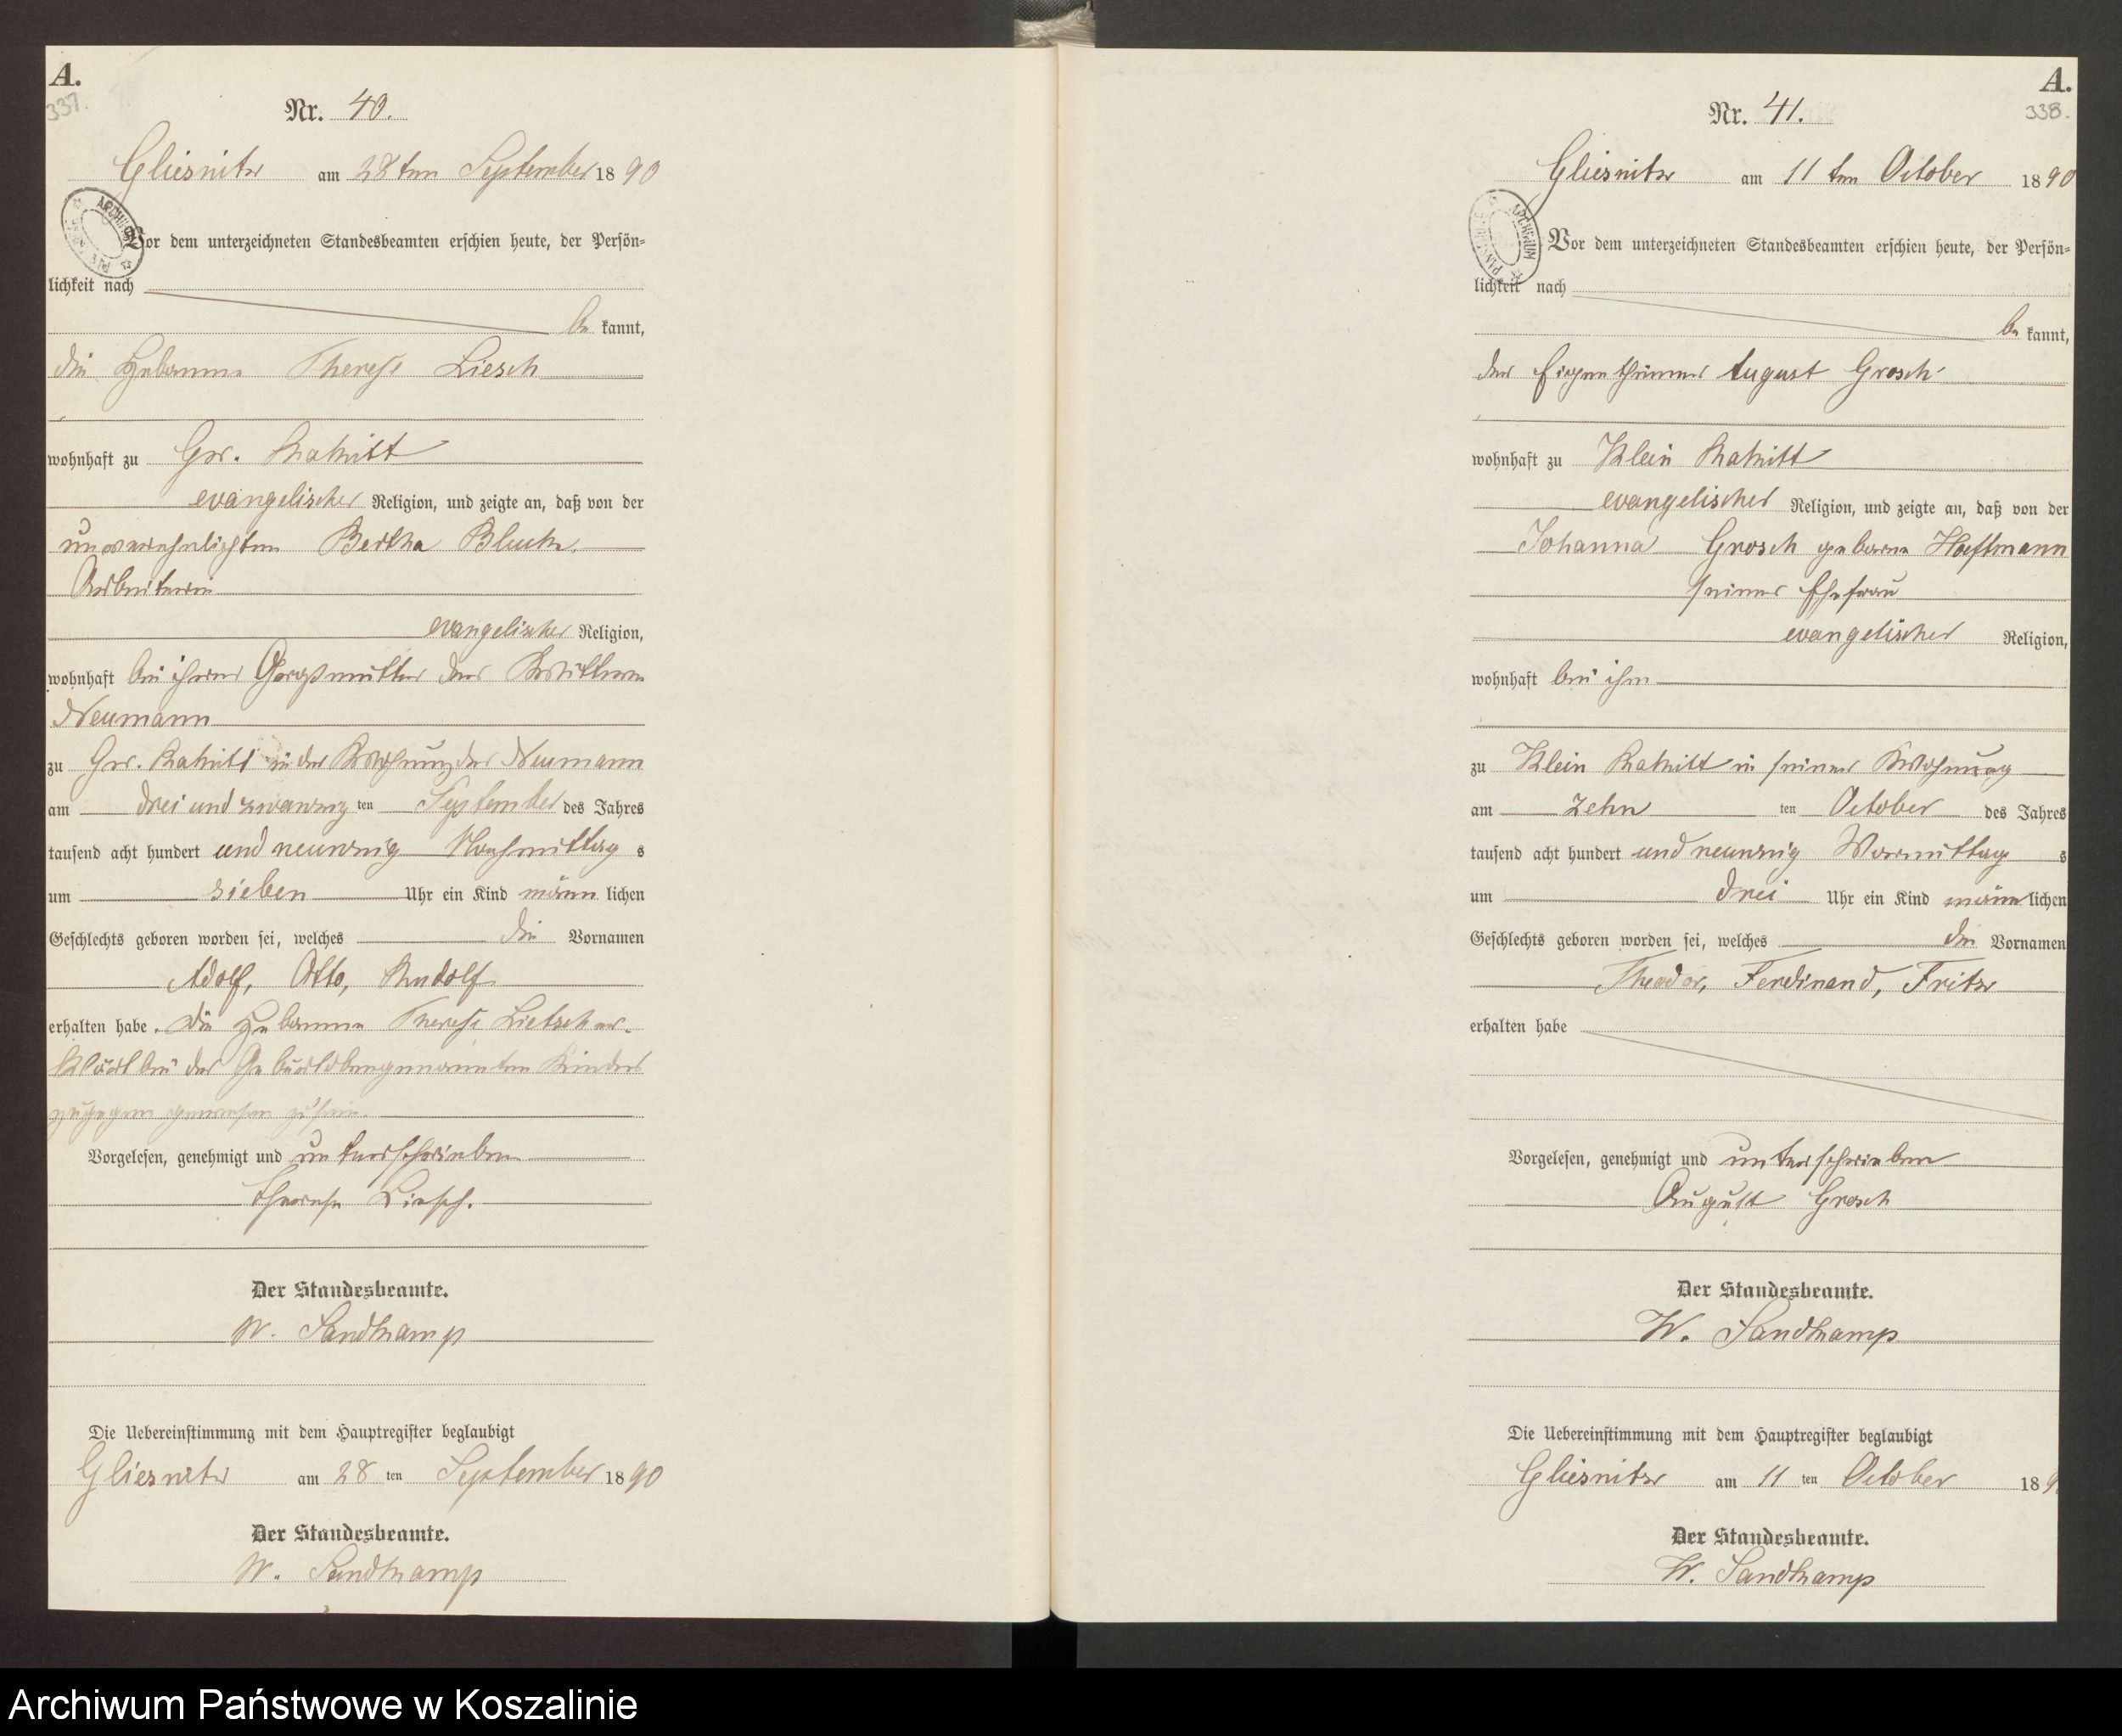 A.
337.
Nr. 40.
Gliesnitz am 28ten September 1890
Vor dem unterzeichneten Standesbeamten erschien heute, der Persön=
lichkeit nach
be kannt,
die Hebamme Therese Liesch
wohnhaft zu Gr.
evangelischer Religion, und zeigte an, daß von der
unverehelichten Bertha
Arbeiterin
evangelischer Religion,
wohnhaft bei ihrer Großmutter der Wittwe
Neumann
zu Gr. in der Wohnung der Neumann
am drei und zwanzig ten September des Jahres
tausend acht hundert und neunzig Nachmittag s
um sieben Uhr ein Kind männ lichen
Geschlechts geboren worden sei, welches die Vornamen
Adolf, Otto, Rudolf
erhalten habe. Die Hebamme Therese Lietsch er-
klärt bei der Geburt obengenannten Kindes
zugegen gewesen zu sein.
Vorgelesen, genehmigt und unterschrieben
Therese Liesch.
Der Standesbeamte.
W. Sandkamp
Die Uebereinstimmung mit dem Hauptregister beglaubigt
Gliesnitz am 28 ten September 1890
Der Standesbeamte.
W. Sandkamp
A.
338.
Nr. 41.
Gliesnitz am 11 ten October 1890
Vor dem unterzeichneten Standesbeamten erschien heute, der Persön=
lichkeit nach
be kannt,
der Eigenthümer August Grosch
wohnhaft zu Klein
evangelischer Religion, und zeigte an, daß von der
Johanna Grosch geborne Hoffmann
seiner Ehefrau
evangelischer Religion,
wohnhaft bei ihm
zu Klein in seiner Wohnung
am zehn ten October des Jahres
tausend acht hundert und neunzig Vormittag s
um drei Uhr ein Kind männ lichen
Geschlechts geboren worden sei, welches die Vornamen
Theodor, Ferdinand, Fritz
erhalten habe
Vorgelesen, genehmigt und unterschrieben
August Grosch
Der Standesbeamte.
W. Sandkamp
Die Uebereinstimmung mit dem Hauptregister beglaubigt
Gliesnitz am 11 ten October 189
Der Standesbeamte.
W. Sandkamp
Archiwum Państwowe w Koszalinie